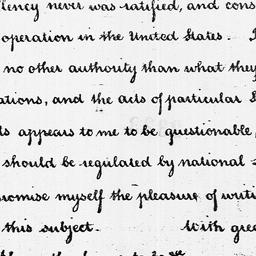 never was ratified, and
operation in the United States.
no other authority than what they
ations, and the acts of particular
appears to me to be questionable,
should be regulated by national
romise myself the pleasure of
this subject. With